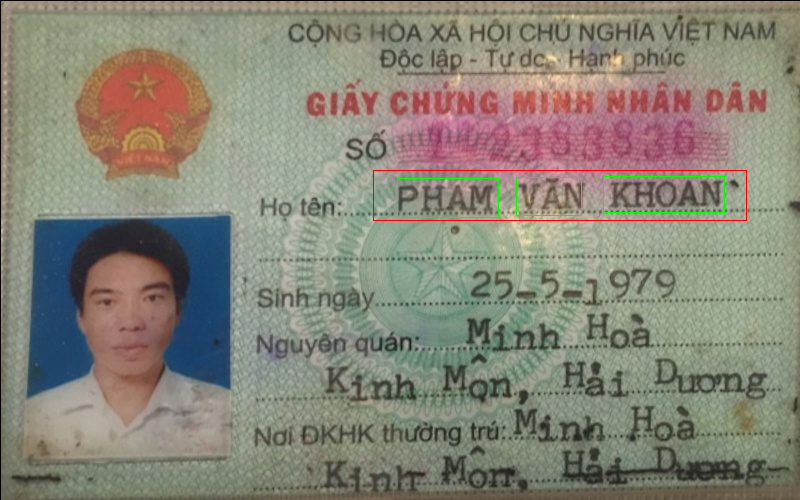 CỘNG HÒA XÃ HỘI CHỦ NGHĨA VIỆT NAM
Độc lập - Tự do - Hạnh phúc
GIẤY CHỨNG MINH NHÂN DÂN
SỐ
VIỆT NAM
Họ tên: PHẠM VĂN KHOAN
Sinh ngày 25-5-1979
Nguyên quán: Minh Hoà
Kinh Môn, Hải Dương
Nơi ĐKHK thường trú: Minh Hoà
Kinh Môn, Hải Dương